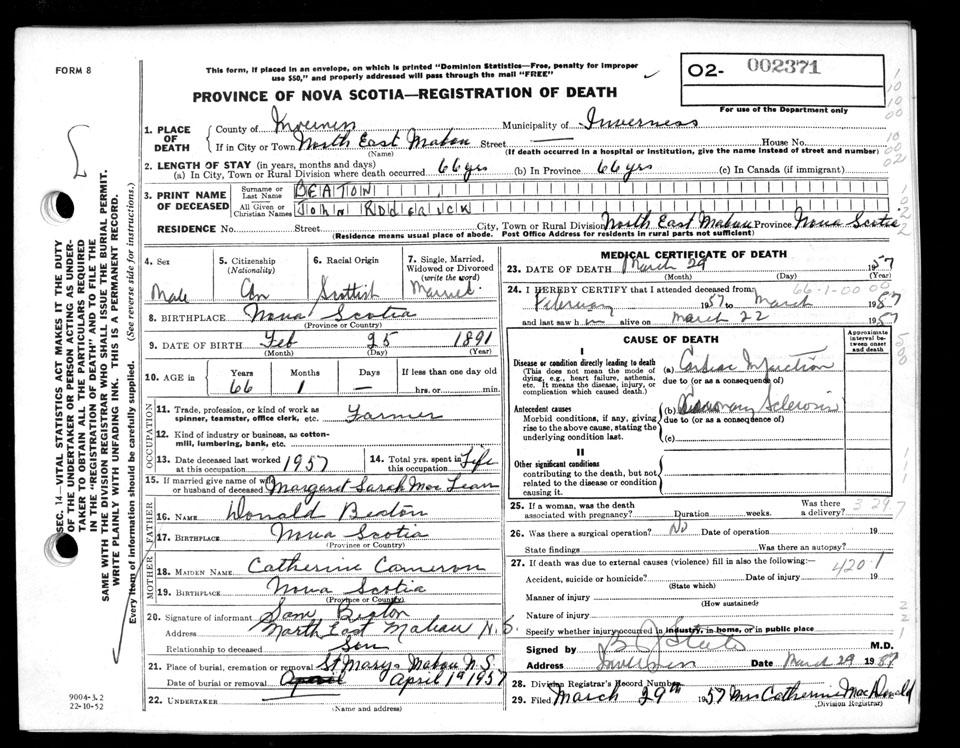 FORM 8
This form, if placed in an envelope, on which is printed "Dominion Statistics—Free, penalty for improper
use $50," and properly addressed will pass through the mail "FREE"
O2- 002371
For use of the Department only
PROVINCE OF NOVA SCOTIA—REGISTRATION OF DEATH
1. PLACE OF DEATH
County of Inverness Municipality of Inverness
If in City or Town North East Mabou Street — House No.
(Name) (If death occurred in a hospital or institution, give the name instead of street and number)
2. LENGTH OF STAY (in years, months and days)
(a) In City, Town or Rural Division where death occurred 66 yrs (b) In Province 66 yrs (c) In Canada (if immigrant)
3. PRINT NAME OF DECEASED
Surname or Last Name BEATON
All Given or Christian Names John Roderick
RESIDENCE No. Street City, Town or Rural Division North East Mabou Province Nova Scotia
(Residence means usual place of abode. Post Office Address for residents in rural parts not sufficient)
4. Sex
Male
5. Citizenship (Nationality)
Can
6. Racial Origin
Scottish
7. Single, Married, Widowed or Divorced (write the word)
Married
8. BIRTHPLACE Nova Scotia
(Province or Country)
9. DATE OF BIRTH Feb 25 1891
(Month) (Day) (Year)
10. AGE in Years Months Days If less than one day old
66 1 — hrs. or min.
OCCUPATION
11. Trade, profession, or kind of work as spinner, teamster, office clerk, etc. Farmer
12. Kind of industry or business, as cotton-mill, lumbering, bank, etc.
13. Date deceased last worked at this occupation 1957
14. Total yrs. spent in this occupation Life
15. If married give name of wife or husband of deceased Margaret Sarah MacLean
FATHER
16. NAME Donald Beaton
17. BIRTHPLACE Nova Scotia
(Province or Country)
MOTHER
18. MAIDEN NAME Catherine Cameron
19. BIRTHPLACE Nova Scotia
(Province or Country)
20. Signature of informant Sam Beaton
Address North East Mabou N.S.
Relationship to deceased Son
21. Place of burial, cremation or removal St Marys Mabou N.S.
Date of burial or removal April 1st 1957
22. UNDERTAKER
(Name and address)
MEDICAL CERTIFICATE OF DEATH
23. DATE OF DEATH March 29 1957
(Month) (Day) (Year)
24. I HEREBY CERTIFY that I attended deceased from
66-1-00 00
February 1957 to March 1957
and last saw him alive on March 22 1957
CAUSE OF DEATH
Approximate interval between onset and death
I
Disease or condition directly leading to death
(This does not mean the mode of dying, e.g., heart failure, asthenia, etc. It means the disease, injury, or complication which caused death.)
(a) Cardiac Infarction
due to (or as a consequence of)
Antecedent causes
Morbid conditions, if any, giving rise to the above cause, stating the underlying condition last.
(b) Coronary Sclerosis
due to (or as a consequence of)
(c)
II
Other significant conditions
contributing to the death, but not related to the disease or condition causing it.
25. If a woman, was the death associated with pregnancy? Duration weeks. Was there a delivery?
3 29 7
26. Was there a surgical operation? No Date of operation 19
State findings Was there an autopsy?
27. If death was due to external causes (violence) fill in also the following:—
420.1
Accident, suicide or homicide? Date of injury 19
(State which)
Manner of injury
(How sustained)
Nature of injury
Specify whether injury occurred in industry, in home, or in public place
Signed by M.D.
Address Inverness Date March 29 1957
28. Division Registrar's Record Number
29. Filed March 29th 1957 Mrs Catherine MacDonald
(Division Registrar)
SEC. 14—VITAL STATISTICS ACT MAKES IT THE DUTY
OF THE UNDERTAKER OR PERSON ACTING AS UNDER-
TAKER TO OBTAIN ALL THE PARTICULARS REQUIRED
IN THE "REGISTRATION OF DEATH" AND TO FILE THE
SAME WITH THE DIVISION REGISTRAR WHO SHALL ISSUE THE BURIAL PERMIT.
WRITE PLAINLY WITH UNFADING INK. THIS IS A PERMANENT RECORD.
Every item of information should be carefully supplied. (See reverse side for instructions.)
9004-3.2
22-10-52